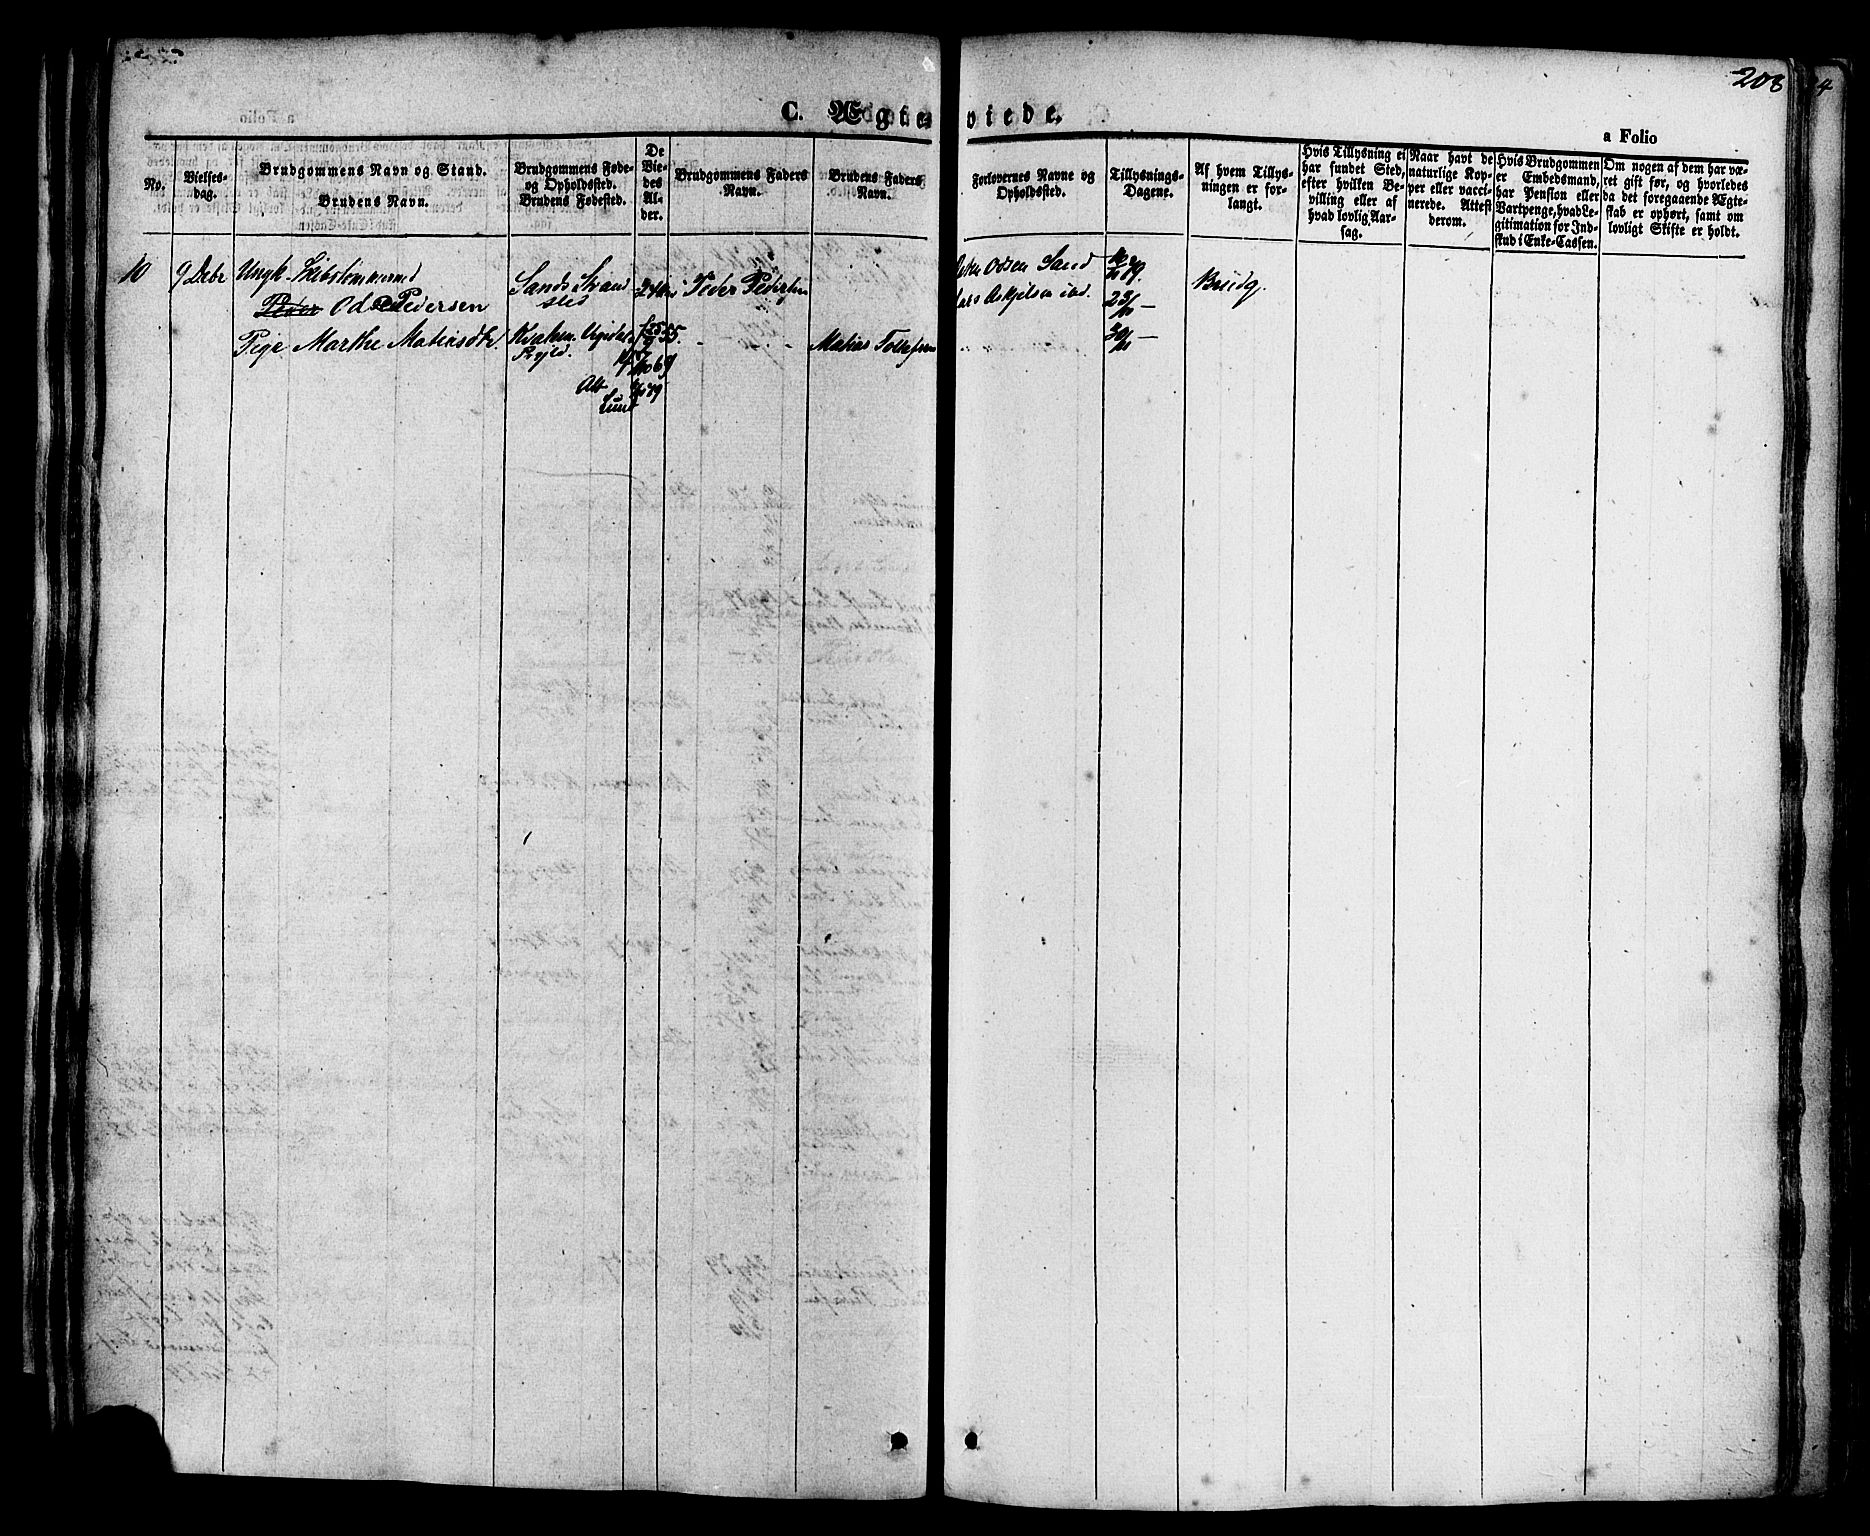 208
C. Ægteviede.
a Folio
No.
Vielses-
dag.
Brudgommens Navn og Stand.
Brudens Navn.
Brudgommens Føde-
og Opholdssted.
Brudens Fødested.
De
Vie-
des
Al-
der.
Brudgommens Faders
Navn.
Brudens Faders
Navn.
Forlovernes Navne og
Opholdssted.
Tillysnings-
Dagene.
Af hvem Tillys-
ningen er for-
langt.
Hvis Tillysning ei
har fundet Sted,
efter hvilken Be-
villing eller af
hvad lovlig Aar-
sag.
Naar havt de
naturlige Kop-
per eller vacci-
nerede. Attest
derom.
Hvis Brudgommen
er Embedsmand,
har Pension eller
Vartpenge, hvad Le-
gitimation for Ind-
skud i Enke-Cassen.
Om nogen af dem har væ-
ret gift før, og hvorledes
da det foregaaende Ægte-
skab er ophørt, samt om
lovligt Skifte er holdt.
10
9 Decbr
Ungk. Skibstømmermd
Odd Pedersen
Sands Strand
sted
Peder Pedersen
Odsen Sand
Lars Askjelsen ibd.
Brudg.
Pige Marthe Matiasdtr
Matias Tollefsen
Att
Lund